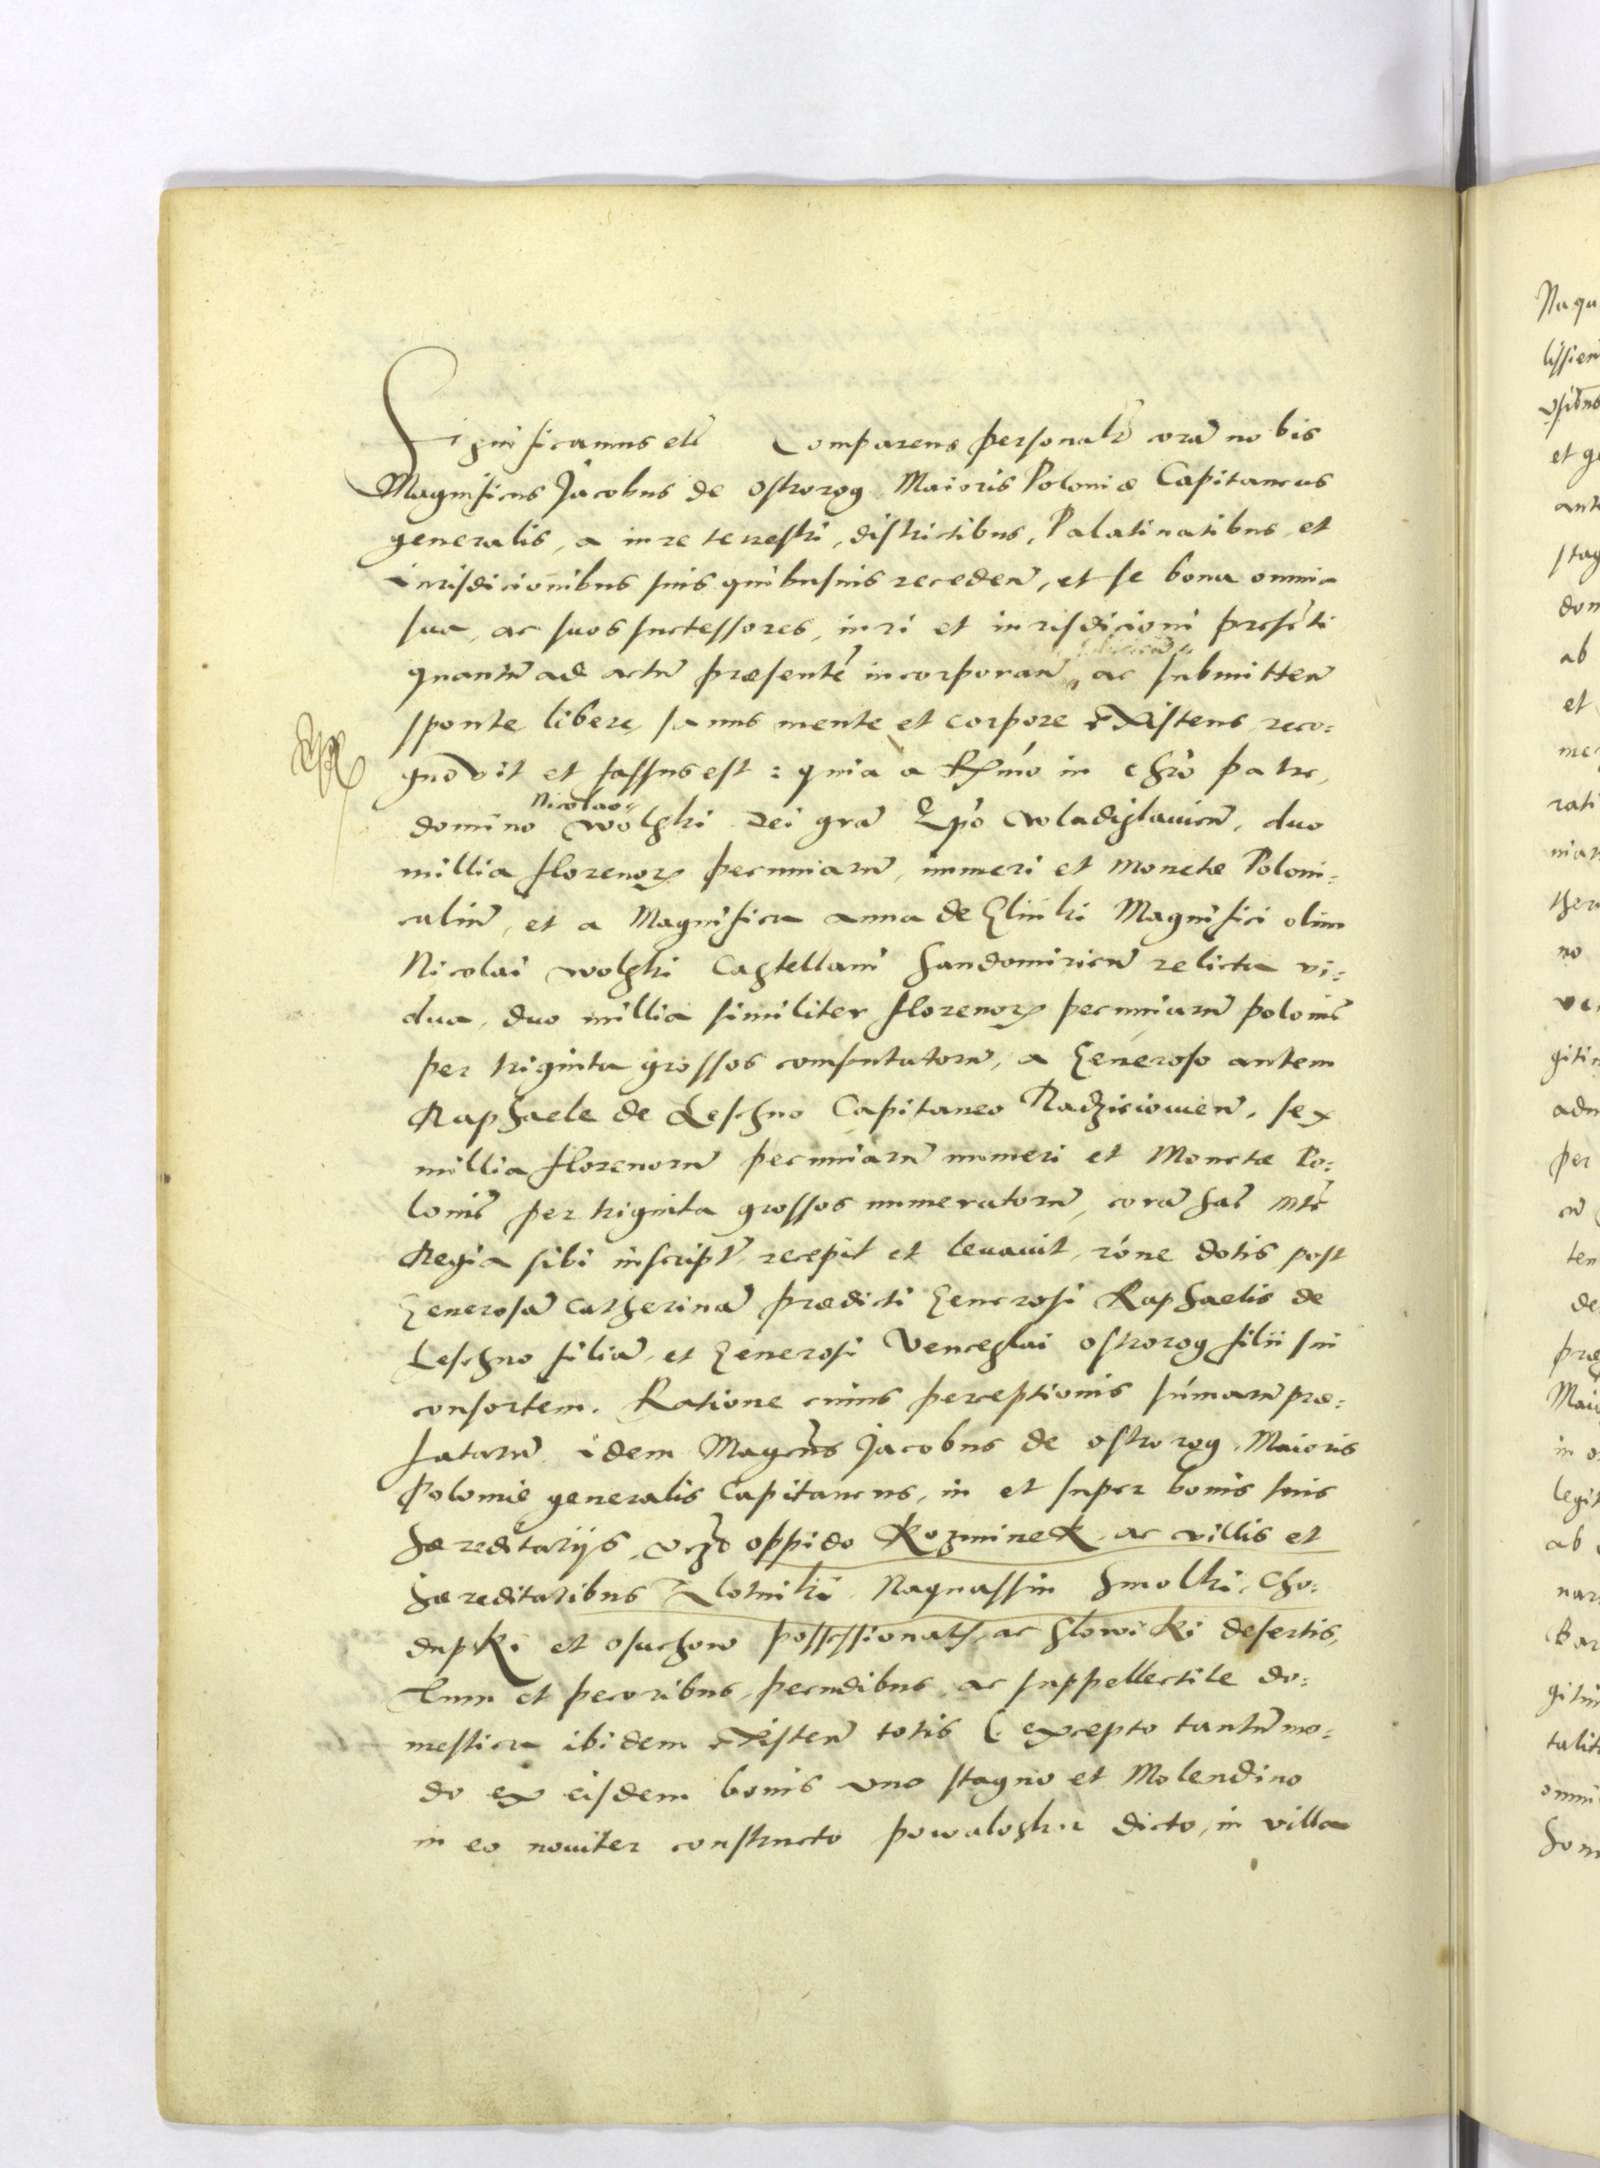 Significamus etc̃ Comparens personalr̃ corã nobis
Magnificus Jacobus de Ostrorog Maioris Poloniæ Capitaneus
generalis, a iure terrestri, districtibus, Palatinatibus et
iurisdicionibus suis quibusuis recedeñ, et se bona omnia
sua, ac suos successores, iuri et iurisdicioni preseñti
quantũ ad actũ præsentẽ incorporañ ac submitteñ
sponte libere sanus mente et corpore existens, reco:
gnovit et fassus est: quia a Rx̃mo in chrõ patre,
Nicolao
domino Wolski Dei grã Ep̃o Wladislauieñ, duo
millia florenoꝝ pecuniarũ, numeri et monetæ Poloni:
caliũ, et a Magnifica Anna de Glinki Magnifici olim
Nicolai Wolski Castellani Sandomirieñ relicta vi:
dua, duo millia similiter florenoꝝ pecuniarũ polonic̃
per triginta grossos computatorũ, a Generoso autem
Raphaele de Leschno Capitaneo Radzieiouieñ, sex
millia florenorũ pecuniarũ numeri et Monetæ Po:
lonic̃ per triginta grossos numeratorũ, corã Sac̃ Mtẽ
Regia sibi inscript̃ recepit et leuauit, rõne dotis post
Generosã Catherinã prædicti Generosi Raphaelis de
Leschno filiã, et Generosi Venceslai Ostrorog filii sui
consortem. Ratione cuius perceptionis sum̃arũ præ:
fatarũ idem Magcũs Jacobus de Ostrorog, Maioris
Poloniæ generalis Capitaneus, in et super bonis suis
hæreditarijs, vcz̃ oppido Kozminek ac villis et
hæreditatibus Zlotniki Naquassin Smolki, Cho:
dupki et Osuchow possessionatꝭ, ac Slowiki desertis,
tum et pecoribus, pecudibus, ac suppellectile do:
mestica ibidem existeñ totis (: excepto tantũ mo:
do ex eisdem bonis vno stagno et Molendino
in eo nouiter constructo dicto, in villa